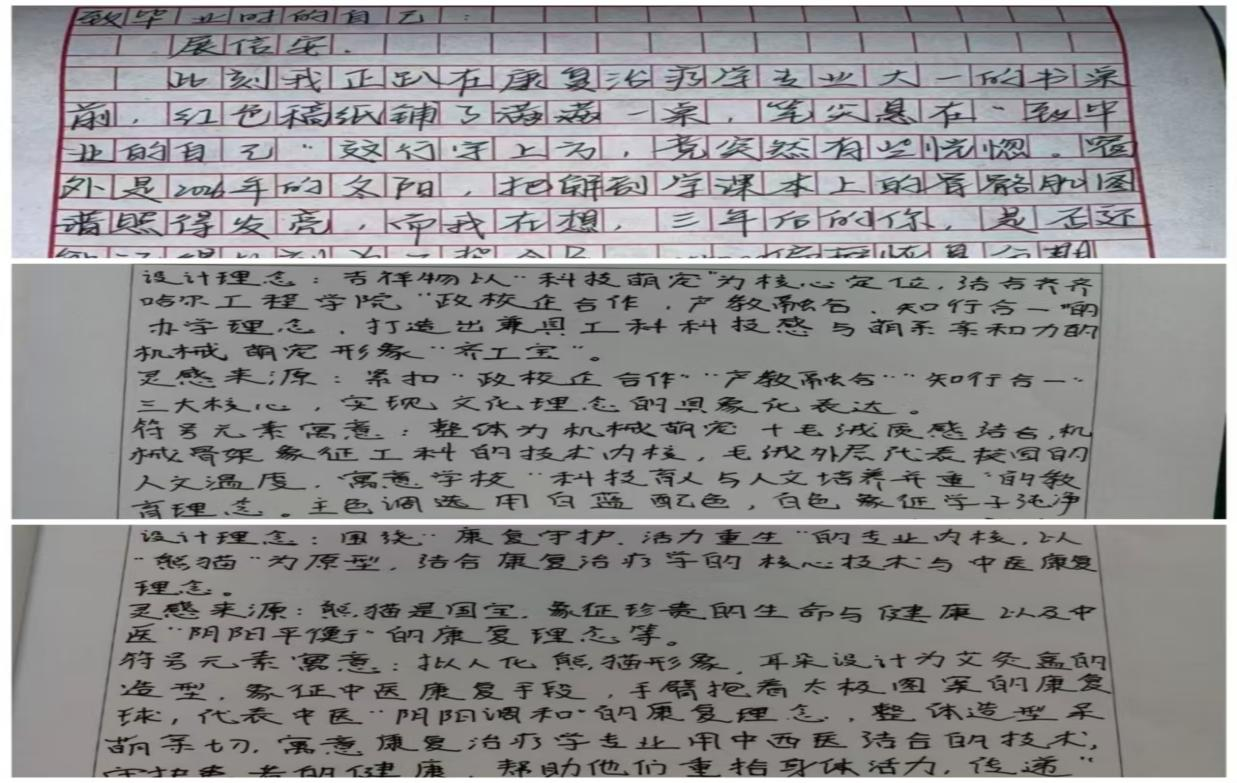 致毕业时的自己：
展信安.
此刻我正趴在康复治疗学专业大一的书桌
前，红色稿纸铺了满满一桌，笔尖悬在“致毕
业的自己”这行字上方，竟突然有些恍惚。窗
外是2026年的冬阳，把解剖学课本上的骨骼肌图
谱照得发亮，而我在想，三年后的你，是否还
设计理念：吉祥物以“科技萌宠”为核心定位，结合齐齐
哈尔工程学院“政校企合作，产教融合，知行合一”的
办学理念，打造出兼具工科科技感与萌系亲和力的
机械萌宠形象“齐工宝”。
灵感来源：紧扣“政校企合作”“产教融合”“知行合一”
三大核心，实现文化理念的具象化表达。
符号元素寓意：整体为机械萌宠+毛绒质感结合，机
械骨架象征工科的技术内核，毛绒外层代表校园的
人文温度，寓意学校“科技育人与人文培养并重”的教
育理念。主色调选用白蓝配色，白色象征学子纯净
设计理念：围绕“康复守护，活力重生”的专业内核，以
“熊猫”为原型，结合康复治疗学的核心技术与中医康复
理念。
灵感来源：熊猫是国宝，象征珍贵的生命与健康 以及中
医“阴阳平衡”的康复理念等。
符号元素寓意：拟人化熊猫形象，耳朵设计为艾灸盒的
造型，象征中医康复手段，手臂抱着太极图案的康复
球，代表中医“阴阳调和”的康复理念，整体造型呆
萌亲切，寓意康复治疗学专业用中西医结合的技术，
守护患者的健康，帮助他们重拾身体活力，传递“